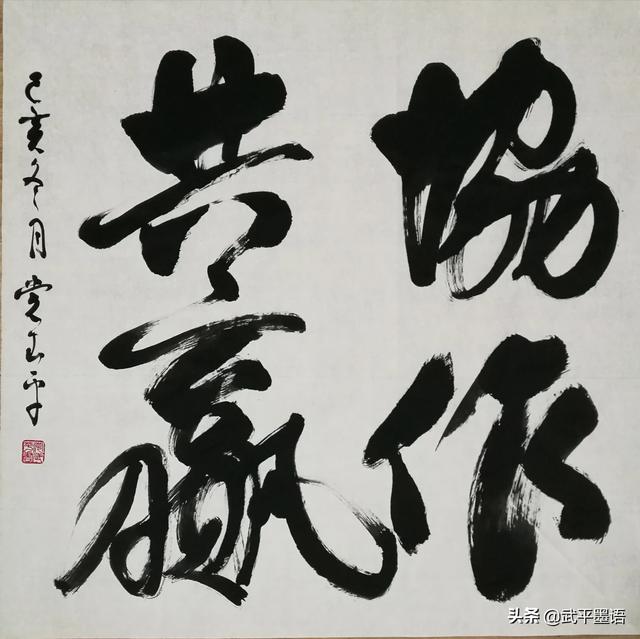 協作
共赢
己亥冬月 党武平
头条 @武平墨语